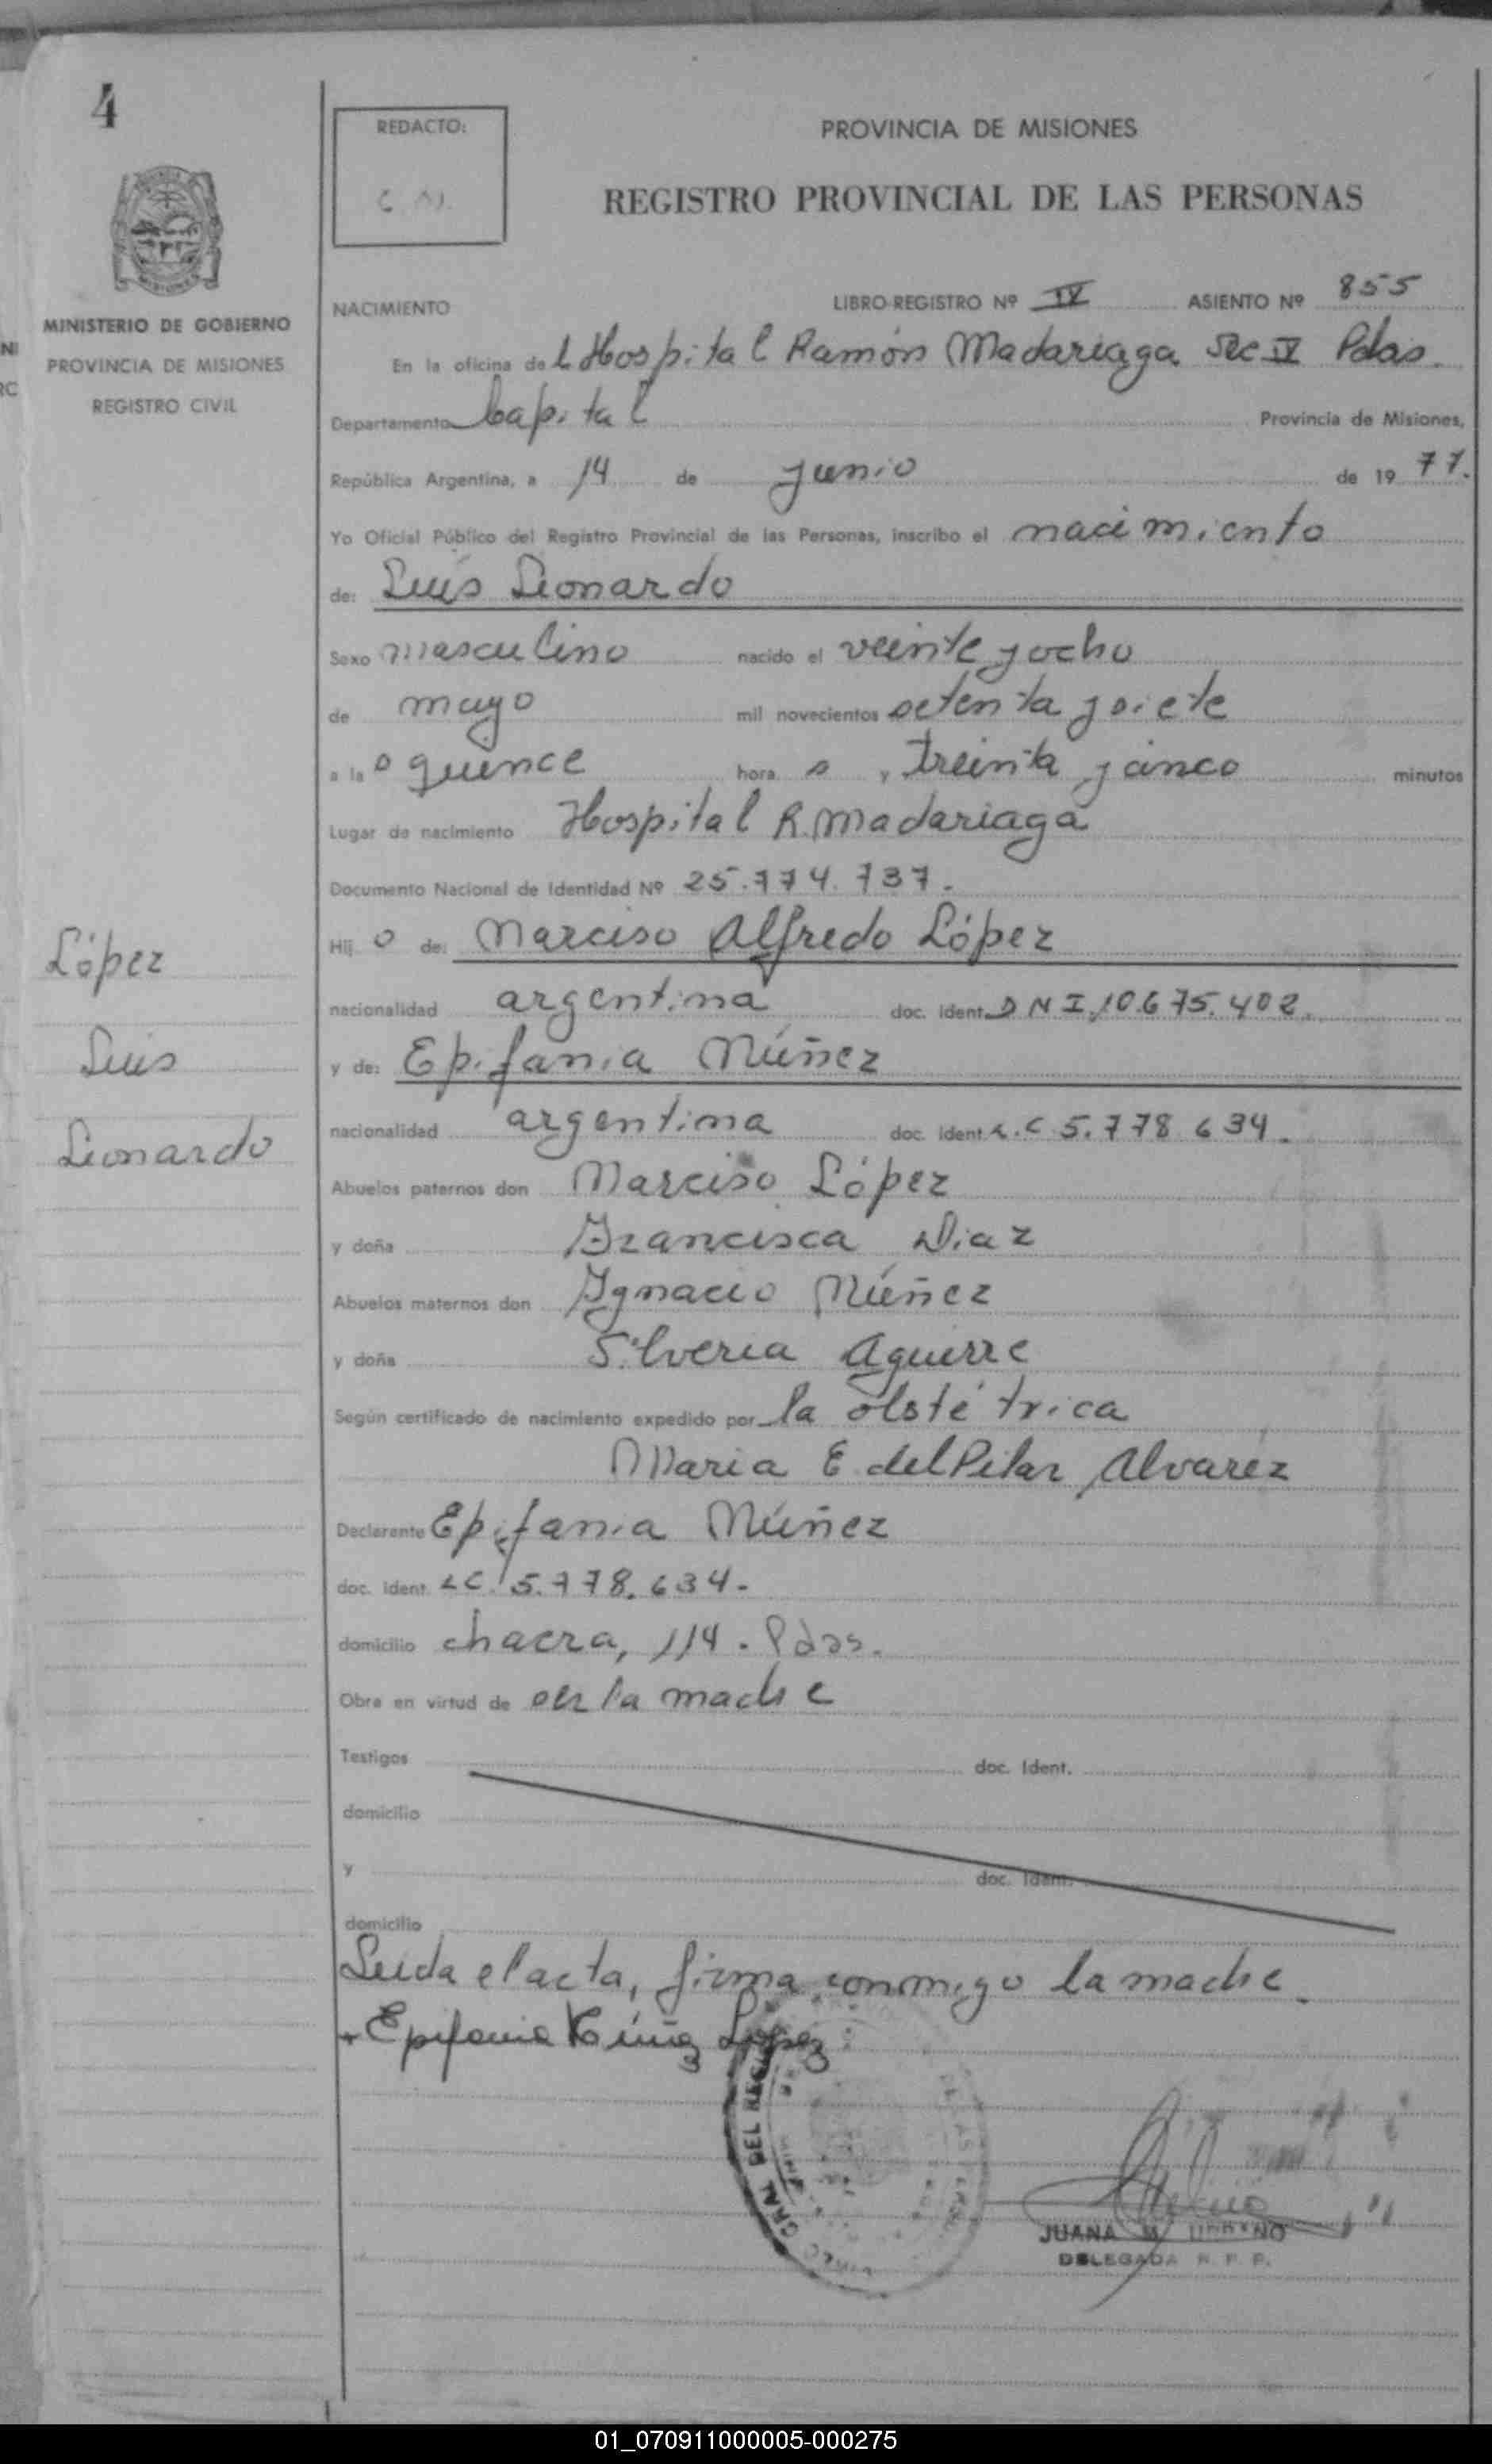 4
REDACTO:
C.N.
PROVINCIA DE MISIONES
REGISTRO PROVINCIAL DE LAS PERSONAS
MINISTERIO DE GOBIERNO
PROVINCIA DE MISIONES
REGISTRO CIVIL
NACIMIENTO LIBRO-REGISTRO Nº IV ASIENTO Nº 855
En la oficina del Hospital Ramón Madariaga Sec IV Pdas.
Departamento Capital Provincia de Misiones,
República Argentina, a 14 de junio de 19 77.
Yo Oficial Público del Registro Provincial de las Personas, inscribo el nacimiento
de: Luis Leonardo
Sexo masculino nacido el veinte y ocho
de mayo mil novecientos setenta y siete
a la s quince hora s y treinta y cinco minutos
Lugar de nacimiento Hospital R. Madariaga
Documento Nacional de Identidad Nº 25.774.737.
Hij o de: Marciso Alfredo López
nacionalidad argentina doc. ident. DNI.10.675.402.
y de: Epifania Núñez
nacionalidad argentina doc. ident. L.C 5.778.634.
Abuelos paternos don Marciso López
y doña Francisca Diaz
Abuelos maternos don Ignacio Núñez
y doña Silveria Aguirre
Según certificado de nacimiento expedido por la obstétrica
Maria E. del Pilar Alvarez
Declarante Epifania Núñez
doc. ident. LC. 5.778.634.
domicilio chacra, 114. Pdas.
Obra en virtud de ser la madre
Testigos doc. Ident.
domicilio
y doc. Ident.
domicilio
Leida el acta, firma conmigo la madre.
Epifania Núñez López
GRAL DEL REG
JUANA M.
DELEGADA R. P. P.
López
Luis
Leonardo
01_070911000005-000275